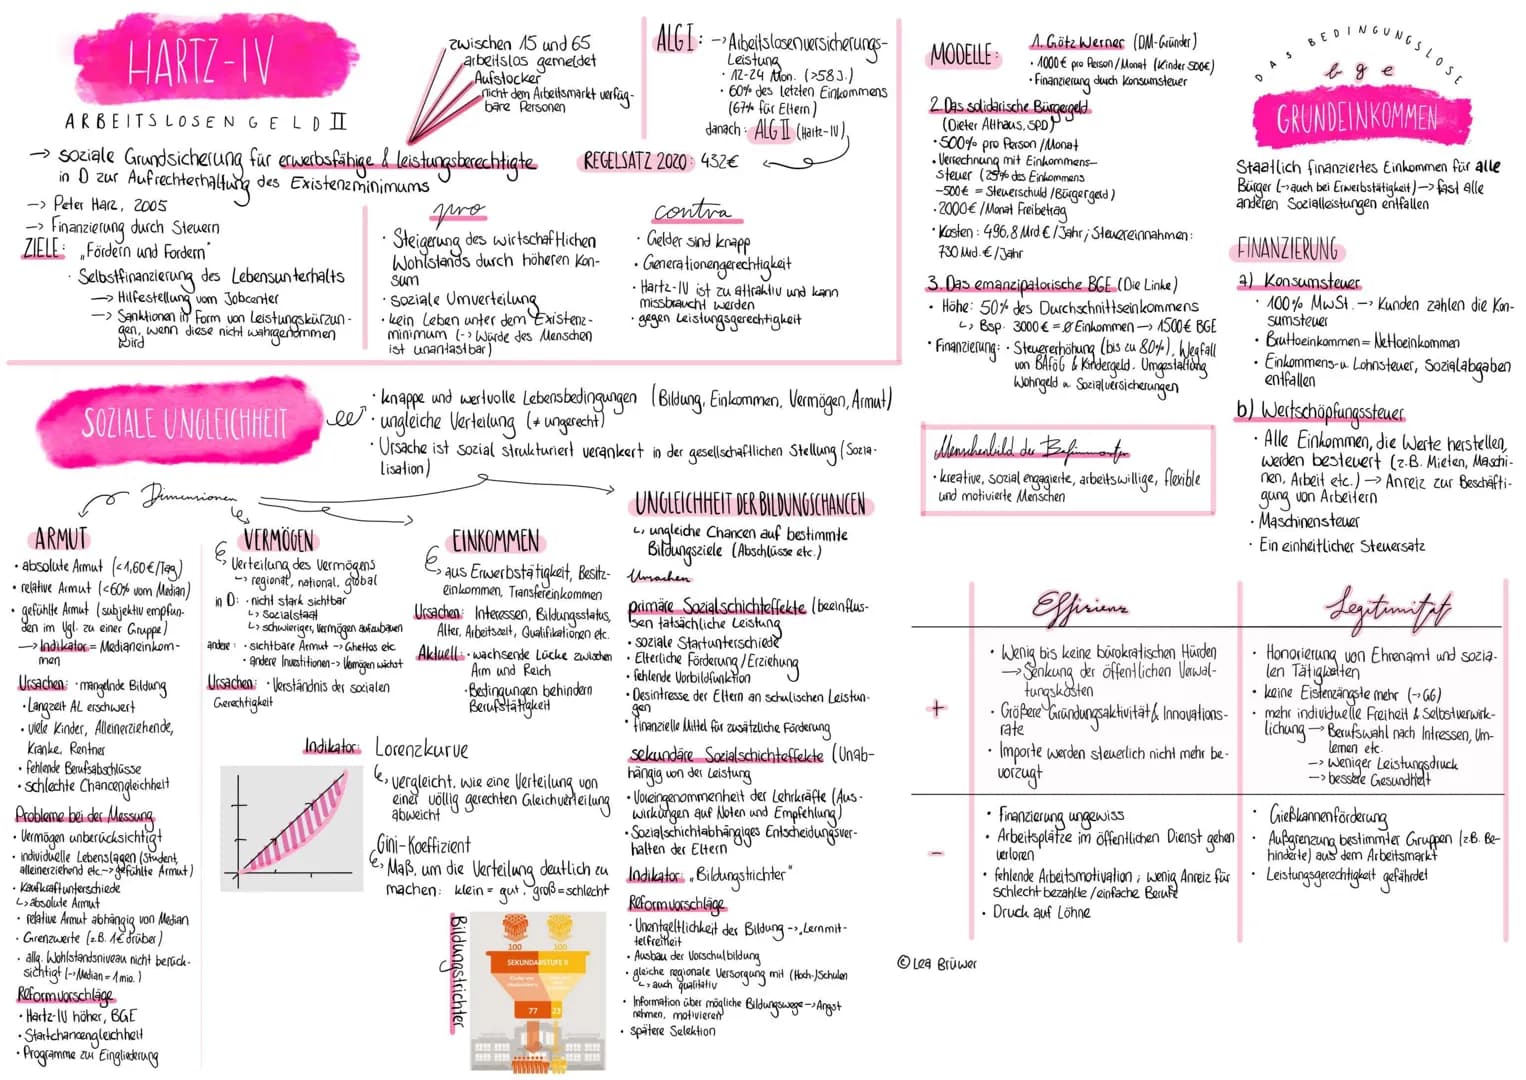 HARTZ-IV
ARBEITSLOSENGELD II
zwischen 15 und 65
arbeitslos gemeldet
Aufstocker
nicht dem Arbeitsmarkt verfüg-
bare Personen
→ soziale Grundsicherung für erwerbsfähige & leistungsberechtigte
in D zur Aufrechterhaltung des Existenzminimums
→ Peter Harz, 2005
→ Finanzierung durch Steuern
ZIELE: „Fördern und Fordern"
· Selbstfinanzierung des Lebensunterhalts
→ Hilfestellung vom Jobcenter
→ Sanktionen in Form von Leistungskürzun-
gen, wenn diese nicht wahrgenommen
wird
ALG I: → Arbeitslosenversicherungs-
Leistung
· 12-24 Mon. (>58J.)
· 60% des letzten Einkommens
(67% für Eltern)
danach: ALG II (Hartz-IV)
REGELSATZ 2020: 432€
pro
· Steigerung des wirtschaftlichen
Wohlstands durch höheren Kon-
sum
· soziale Umverteilung
· kein Leben unter dem Existenz-
minimum (→ Würde des Menschen
ist unantastbar)
contra
· Gelder sind knapp
· Generationengerechtigkeit
· Hartz-IV ist zu attraktiv und kann
missbraucht werden
· gegen Leistungsgerechtigkeit
SOZIALE UNGLEICHHEIT
· knappe und wertvolle Lebensbedingungen (Bildung, Einkommen, Vermögen, Armut)
· ungleiche Verteilung (≠ ungerecht)
· Ursache ist sozial strukturiert verankert in der gesellschaftlichen Stellung (Sozia-
lisation)
Dimensionen
ARMUT
· absolute Armut (<1,60€/Tag)
· relative Armut (<60% vom Median)
· gefühlte Armut (subjektiv empfun-
den im Vgl. zu einer Gruppe)
→ Indikator = Medianeinkom-
men
Ursachen: · mangelnde Bildung
· Langzeit AL erschwert
· viele Kinder, Alleinerziehende,
Kranke, Rentner
· fehlende Berufsabschlüsse
· schlechte Chancengleichheit
Probleme bei der Messung
· Vermögen unberücksichtigt
· individuelle Lebenslagen (Student,
alleinerziehend etc. → gefühlte Armut)
· Kaufkraftunterschiede
↳ absolute Armut
· relative Armut abhängig von Median
· Grenzwerte (z.B. 1€ drüber)
· allg. Wohlstandsniveau nicht berück-
sichtigt (→ Median = 1 mio.)
Reformvorschläge
· Hartz-IV höher, BGE
· Startchancengleichheit
· Programme zur Eingliederung
VERMÖGEN
Verteilung des Vermögens
→ regional, national, global
in D: · nicht stark sichtbar
↳ Sozialstaat
↳ schwieriger, Vermögen aufzubauen
andere: · sichtbare Armut → Ghettos etc
· andere Investitionen → Vermögen wächst
Ursachen: · Verständnis der sozialen
Gerechtigkeit
EINKOMMEN
aus Erwerbstätigkeit, Besitz-
einkommen, Transfereinkommen
Ursachen: Interessen, Bildungsstatus,
Alter, Arbeitszeit, Qualifikationen etc.
Aktuell: · wachsende Lücke zwischen
Arm und Reich
· Bedingungen behindern
Berufstätigkeit
Indikator: Lorenzkurve
vergleicht, wie eine Verteilung von
einer völlig gerechten Gleichverteilung
abweicht
Gini-Koeffizient
Maß, um die Verteilung deutlich zu
machen: klein = gut, groß = schlecht
Bildungstrichter
100 100
SEKUNDARSTUFE II
77 23
UNGLEICHHEIT DER BILDUNGSCHANCEN
↳ ungleiche Chancen auf bestimmte
Bildungsziele (Abschlüsse etc.)
Ursachen
primäre Sozialschichteffekte (beeinflus-
sen tatsächliche Leistung
· soziale Startunterschiede
· Elterliche Förderung/Erziehung
· fehlende Vorbildfunktion
· Desintresse der Eltern an schulischen Leistun-
gen
· finanzielle Mittel für zusätzliche Förderung
sekundäre Sozialschichteffekte (Unab-
hängig von der Leistung
· Voreingenommenheit der Lehrkräfte (Aus-
wirkungen auf Noten und Empfehlung)
· Sozialschichtabhängiges Entscheidungsver-
halten der Eltern
Indikator: „Bildungstrichter"
Reformvorschläge
· Unentgeltlichkeit der Bildung → Lernmit-
telfreiheit
· Ausbau der Vorschulbildung
· gleiche regionale Versorgung mit (Hoch-)Schulen
↳ auch qualitativ
· Information über mögliche Bildungswege → Angst
nehmen, motivieren
· spätere Selektion
MODELLE:
1. Götz Werner (DM-Gründer)
· 1000€ pro Person/Monat (Kinder 500€)
· Finanzierung durch Konsumsteuer
2. Das solidarische Bürgergeld
(Dieter Althaus, SPD)
· 500% pro Person/Monat
· Verrechnung mit Einkommens-
steuer (25% des Einkommens
-500€ = Steuerschuld/Bürgergeld)
· 2000€/Monat Freibetrag
· Kosten: 496,8 Mrd €/Jahr; Steuereinnahmen:
730 Mrd. €/Jahr
3. Das emanzipatorische BGE (Die Linke)
· Höhe: 50% des Durchschnittseinkommens
↳ Bsp. 3000€ = ø Einkommen → 1500€ BGE
· Finanzierung: · Steuererhöhung (bis zu 80%), Wegfall
von BAföG & Kindergeld. Umgestaltung
Wohngeld u. Sozialversicherungen
Menschenbild der Befürworter
· kreative, sozial engagierte, arbeitswillige, flexible
und motivierte Menschen
DAS BEDINGUNGSLOSE
bge
GRUNDEINKOMMEN
Staatlich finanziertes Einkommen für alle
Bürger (→ auch bei Erwerbstätigkeit) → fast alle
anderen Sozialleistungen entfallen
FINANZIERUNG
a) Konsumsteuer
· 100% MwSt. → Kunden zahlen die Kon-
sumsteuer
· Bruttoeinkommen = Nettoeinkommen
· Einkommens- u. Lohnsteuer, Sozialabgaben
entfallen
b) Wertschöpfungssteuer
· Alle Einkommen, die Werte herstellen,
werden besteuert (z.B. Mieten, Maschi-
nen, Arbeit etc.) → Anreiz zur Beschäfti-
gung von Arbeitern
· Maschinensteuer
· Ein einheitlicher Steuersatz
Effizienz
Legitimität
+
· Wenig bis keine bürokratischen Hürden
→ Senkung der öffentlichen Verwal-
tungskosten
· Größere Gründungsaktivität & Innovations-
rate
· Importe werden steuerlich nicht mehr be-
vorzugt
· Honorierung von Ehrenamt und sozia-
len Tätigkeiten
· keine Existenzängste mehr (→ GG)
· mehr individuelle Freiheit & Selbstverwirk-
lichung → Berufswahl nach Intressen, Um-
lernen etc.
→ weniger Leistungsdruck
→ bessere Gesundheit
-
· Finanzierung ungewiss
· Arbeitsplätze im öffentlichen Dienst gehen
verloren
· fehlende Arbeitsmotivation; wenig Anreiz für
schlecht bezahlte/einfache Berufe
· Druck auf Löhne
· Gießkannenförderung
· Außgrenzung bestimmter Gruppen (z.B. Be-
hinderte) aus dem Arbeitsmarkt
· Leistungsgerechtigkeit gefährdet
© Lea Brüwer